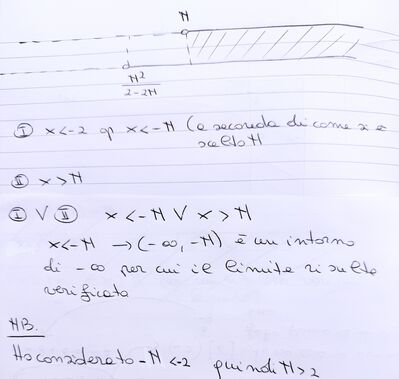 M
M²
2-2M
Ⅰ x<-2 op x<-M (a seconda di come si è
scelto M
Ⅱ x>M
Ⅰ V Ⅱ x<-M V x>M
x<-M → (-∞, -M) è un intorno
di -∞ per cui il limite risulta
verificato
NB.
Ho considerato -M <-2 quindi M>2